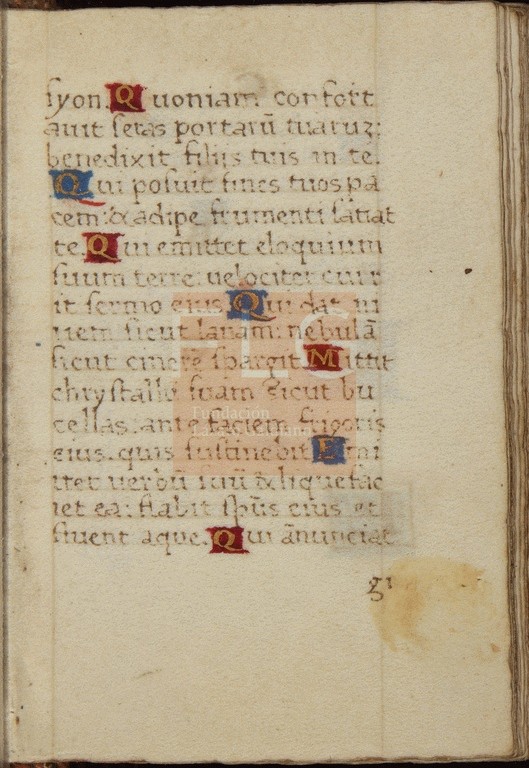 syon. Quoniam confort
avit seras portarū tuaruz:
benedixit filijs tuis in te.
Qui posuit fines tuos pa
cem: & adipe frumenti satiat
te. Qui emittet eloquium
suum terre: velociter curr
it sermo eius. Qui dat ni
vem sicut lanam: nebulā
sicut cinerē spargit. Mittit
chrystallū suam sicut bu
cellas: ante faciem frigoris
eius. quis sustinebit. Emi
ttet verbū suū & liquefac
iet ea: flabit spūs eius et
fluent aque. Qui ānunciat
FLG
Fundación
Lázaro Galdiano